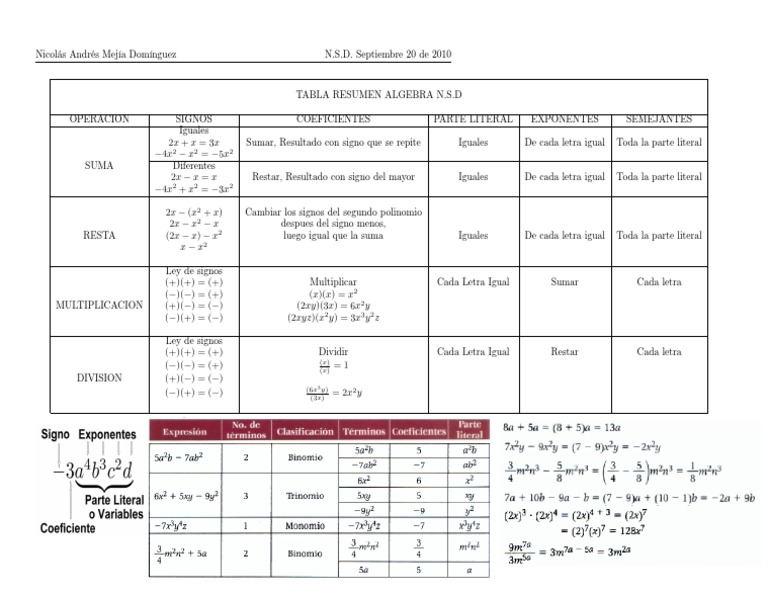 Nicolás Andrés Mejía Domínguez N.S.D. Septiembre 20 de 2010
TABLA RESUMEN ALGEBRA N.S.D
OPERACION SIGNOS COEFICIENTES PARTE LITERAL EXPONENTES SEMEJANTES
SUMA
Iguales
2x + x = 3x
−4x² − x² = −5x²
Sumar, Resultado con signo que se repite
Iguales
De cada letra igual
Toda la parte literal
Diferentes
2x − x = x
−4x² + x² = −3x²
Restar, Resultado con signo del mayor
Iguales
De cada letra igual
Toda la parte literal
RESTA
2x − (x² + x)
2x − x² − x
(2x − x) − x²
x − x²
Cambiar los signos del segundo polinomio
despues del signo menos,
luego igual que la suma
Iguales
De cada letra igual
Toda la parte literal
MULTIPLICACION
Ley de signos
(+)(+) = (+)
(−)(−) = (+)
(+)(−) = (−)
(−)(+) = (−)
Multiplicar
(x)(x) = x²
(2xy)(3x) = 6x²y
(2xyz)(x²y) = 3x³y²z
Cada Letra Igual
Sumar
Cada letra
DIVISION
Ley de signos
(+)(+) = (+)
(−)(−) = (+)
(+)(−) = (−)
(−)(+) = (−)
Dividir
(x)/(x) = 1
(6x³y)/(3x) = 2x²y
Cada Letra Igual
Restar
Cada letra
Signo Exponentes
−3a⁴b³c²d
Parte Literal
o Variables
Coeficiente
Expresión No. de términos Clasificación Términos Coeficientes Parte literal
5a²b − 7ab² 2 Binomio
5a²b 5 a²b
−7ab² −7 ab²
6x² + 5xy − 9y² 3 Trinomio
6x² 6 x²
5xy 5 xy
−9y² −9 y²
−7x³y⁴z 1 Monomio −7x³y⁴z −7 x³y⁴z
3/4 m²n² + 5a 2 Binomio
3/4 m²n² 3/4 m²n²
5a 5 a
8a + 5a = (8 + 5)a = 13a
7x²y − 9x²y = (7 − 9)x²y = −2x²y
3/4 m²n³ − 5/8 m²n³ = (3/4 − 5/8) m²n³ = 1/8 m²n³
7a + 10b − 9a − b = (7 − 9)a + (10 − 1)b = −2a + 9b
(2x)³ · (2x)⁴ = (2x)⁴ ⁺ ³ = (2x)⁷
= (2)⁷(x)⁷ = 128x⁷
9m⁷ᵃ/3m⁵ᵃ = 3m⁷ᵃ ⁻ ⁵ᵃ = 3m²ᵃ